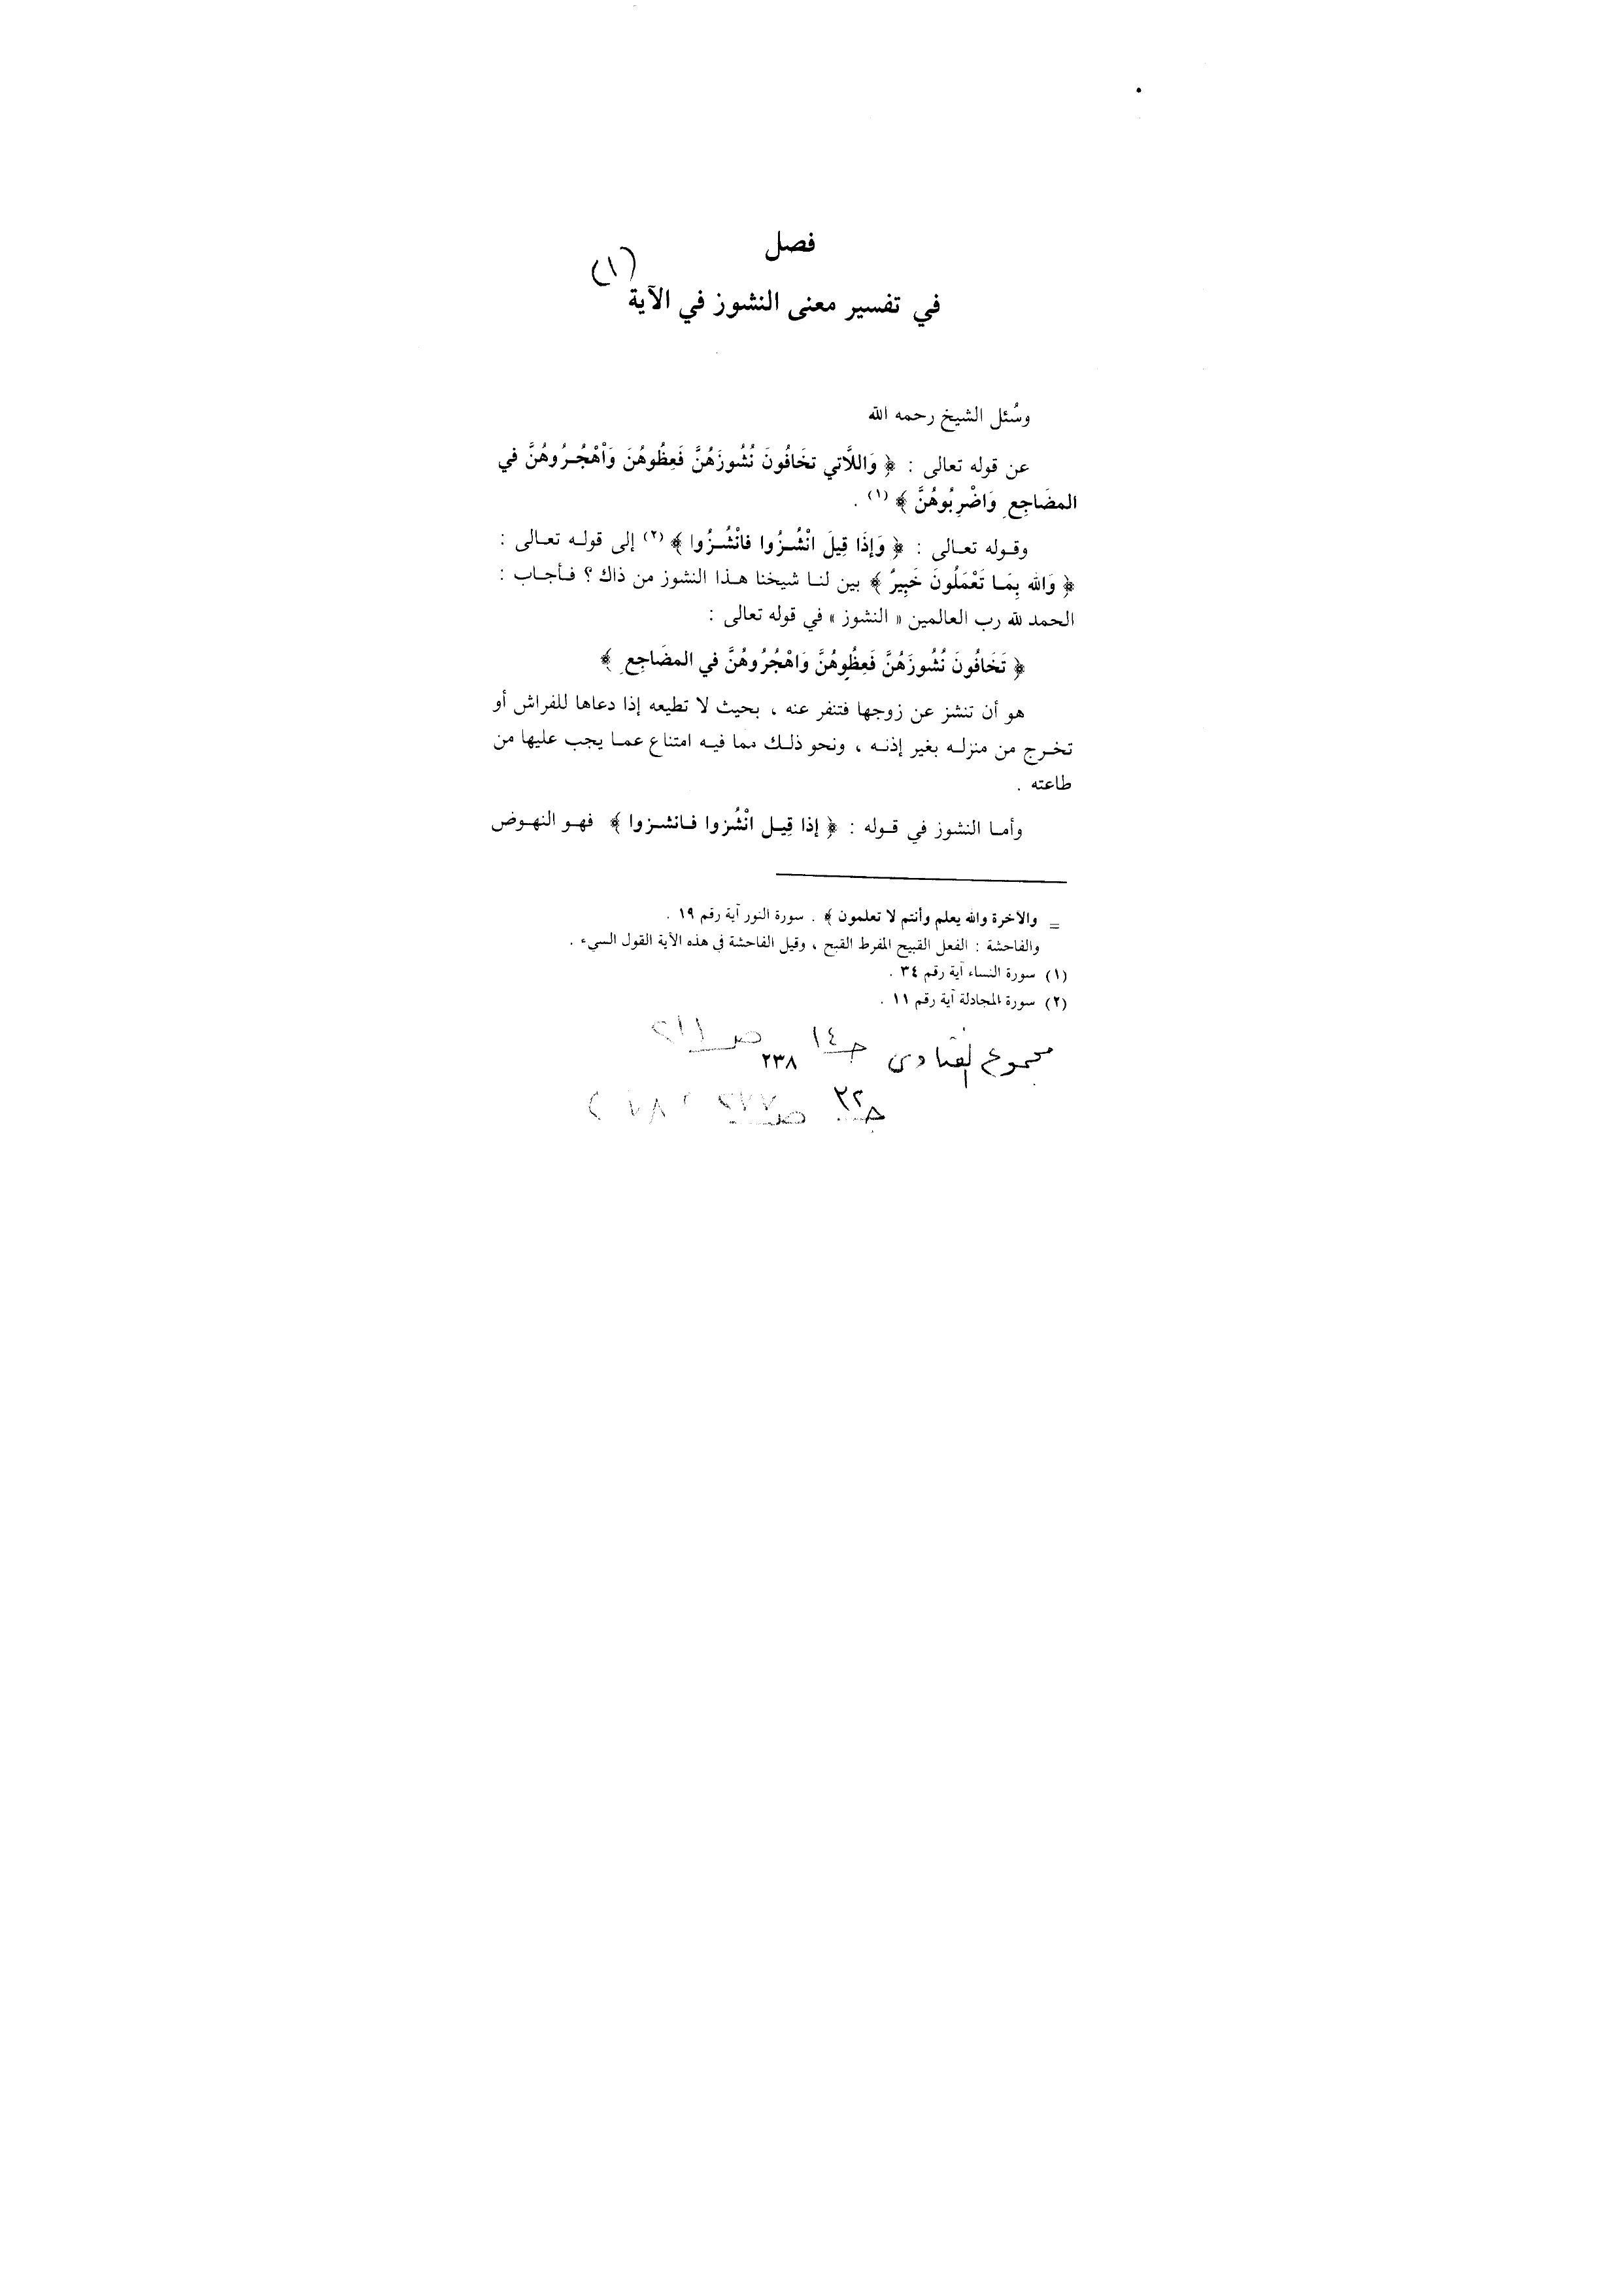 فصل
في تفسير معنى النشوز في الآية (١)
وسُئل الشيخ رحمه الله
عن قوله تعالى : ﴿ وَاللَّاتي تخَافُونَ نُشُوزَهُنَّ فَعِظُوهُنَ وَاْهْجُـرُوهُنَّ في
المضَاجِعِ وَاضْرِبُوهُنَّ ﴾ (١) .
وقـوله تعـالى : ﴿ وَإذَا قِيلَ انْشُـزُوا فانْشُـزُوا ﴾ (٢) إلى قولـه تعـالى :
﴿ وَالله بِمَـا تَعْمَلُونَ خَبِيرُ ﴾ بين لنـا شيخنا هـذا النشوز من ذاك ؟ فـأجـاب :
الحمد لله رب العالمين « النشوز » في قوله تعالى :
﴿ تَخَافُونَ نُشُوزَهُنَّ فَعِظُوهُنَّ وَاهْجُرُوهُنَّ في المضَاجِعِ ﴾
هو أن تنشز عن زوجها فتنفر عنه ، بحيث لا تطيعه إذا دعاها للفراش أو
تخـرج من منزلـه بغير إذنـه ، ونحو ذلـك مما فيـه امتناع عمـا يجب عليها من
طاعته .
وأمـا النشوز في قـوله : ﴿ إذا قِيـل انْشُزوا فـانشـزوا ﴾ فهـو النهـوض
= والآخرة والله يعلم وأنتم لا تعلمون ﴾ . سورة النور آية رقم ١٩ .
والفاحشة : الفعل القبيح المفرط القبح ، وقيل الفاحشة في هذه الآية القول السيء .
(١) سورة النساء آية رقم ٣٤ .
(٢) سورة المجادلة آية رقم ١١ .
مجموع الفتاوى جـ ١٤ صـ ٢١١
٢٣٨
جـ ٣٢ صـ ٢٧٧